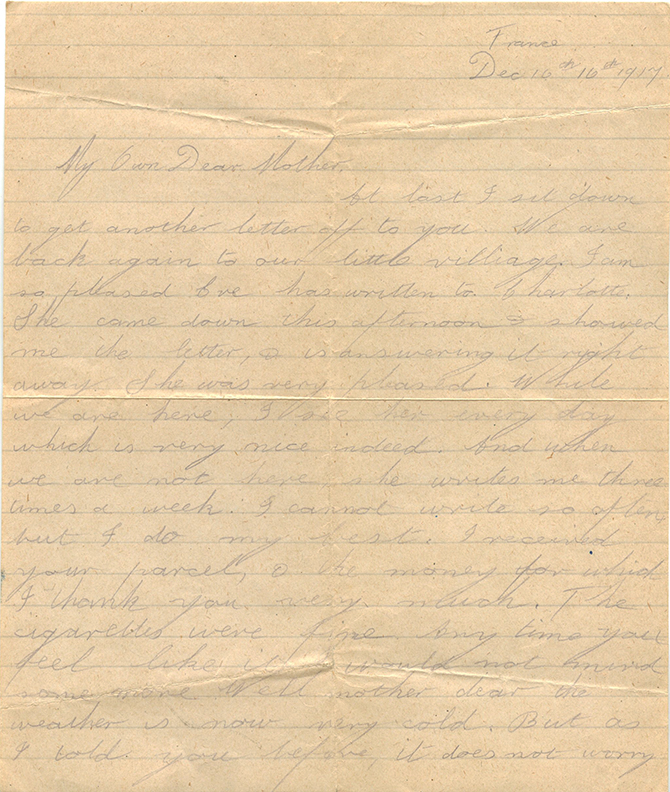 France
Dec 16th 16th 1917
My Own Dear Mother,
At last I sit down
to get another letter off to you. We are
back again to our little villiage. I am
so pleased Eve has written to Charlotte.
She came down this afternoon & showed
me the letter, & is answering it right
away. She was very pleased. While
we are here, I see her every day
which is very nice indeed. And when
we are not here, she writes me three
times a week. I cannot write so often
but I do my best. I received
your parcel, & the money for which
I thank you very much. The
cigarettes were fine. Any time you
feel like it I would not mind
some more. Well mother dear the
weather is now very cold. But as
I told you before it does not worry